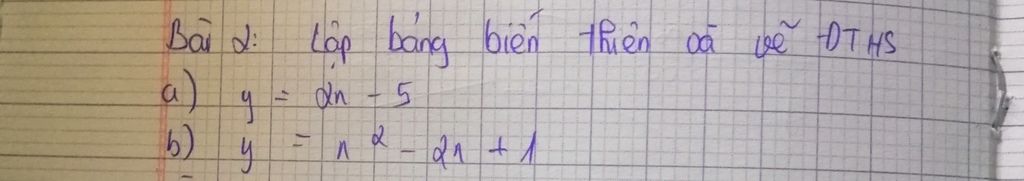 Bài 2: Lập bảng biến thiên và vẽ ĐTHS
a) y = 2x - 5
b) y = x² - 2x + 1